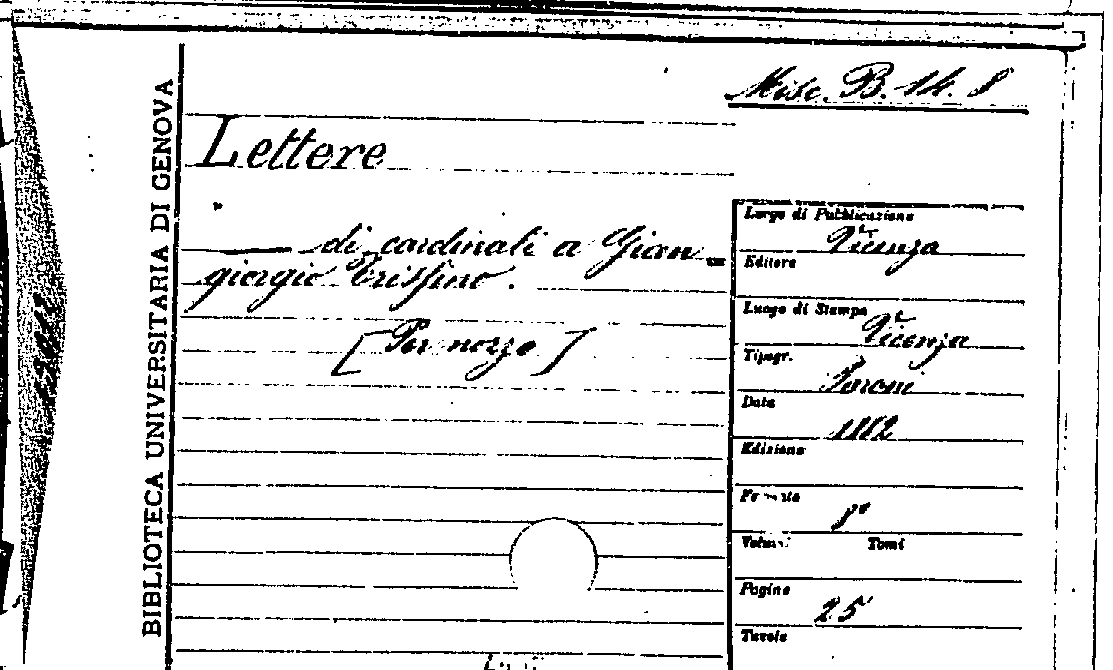 BIBLIOTECA UNIVERSITARIA DI GENOVA
Misc. B. 14. 8
Lettere
— di cardinali a Gian
giorgio Trissino.
[Per nozze]
Luogo di Pubblicazione
Vicenza
Editore
Luogo di Stampa
Vicenza
Tipogr.
Paroni
Data
Edizione
8°
Tomi
Pagine
25
Tavole